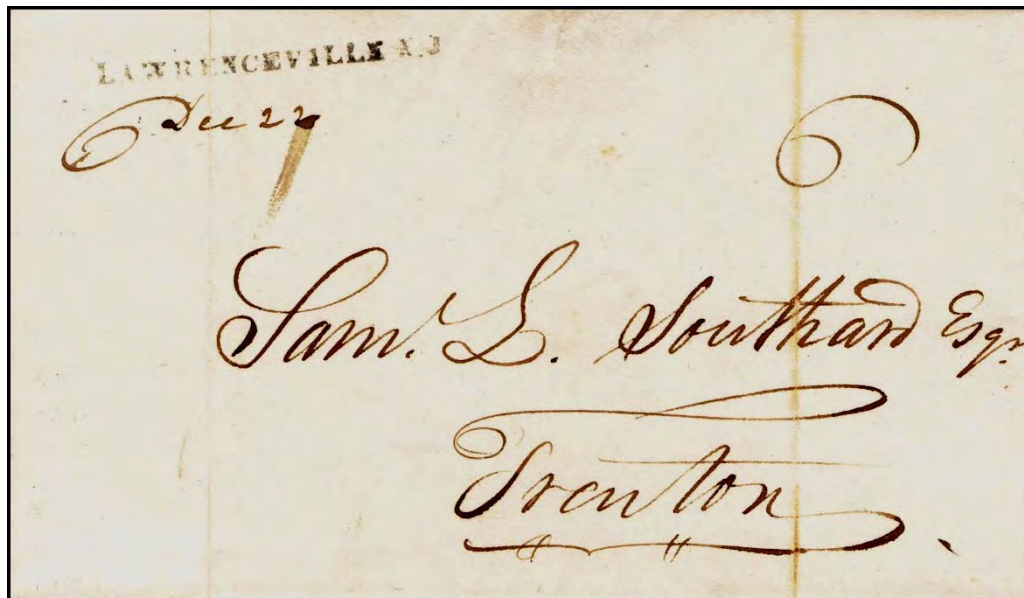 LAWRENCEVILLE N.J
Dec 22
6
Sam<sup>l</sup>. L. Southard Esqr.
Trenton